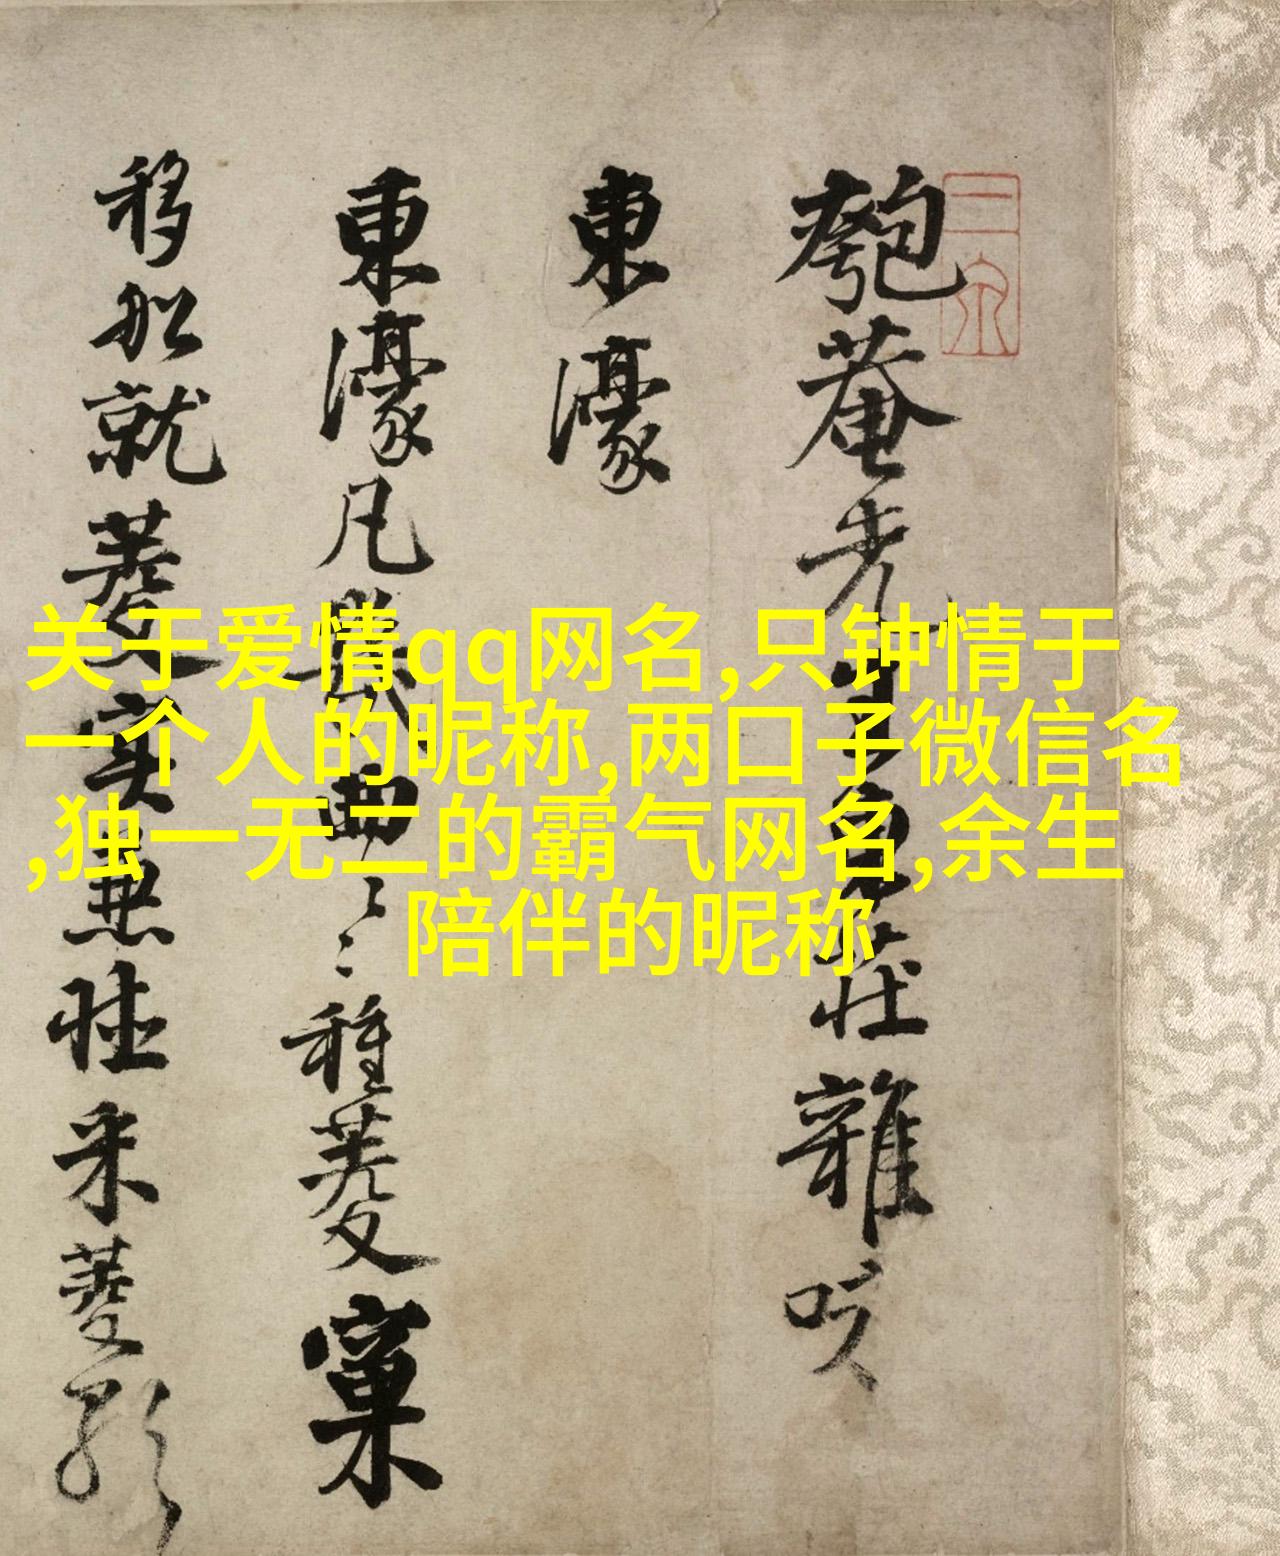 关于爱情qq网名,只钟情于
一个人的昵称,两口子微信名
,独一无二的霸气网名,余生
陪伴的昵称
匏菴先生東莊雜咏
東濠
東濠凡幾曲〻〻種菱窠
移船就菱實無采菱